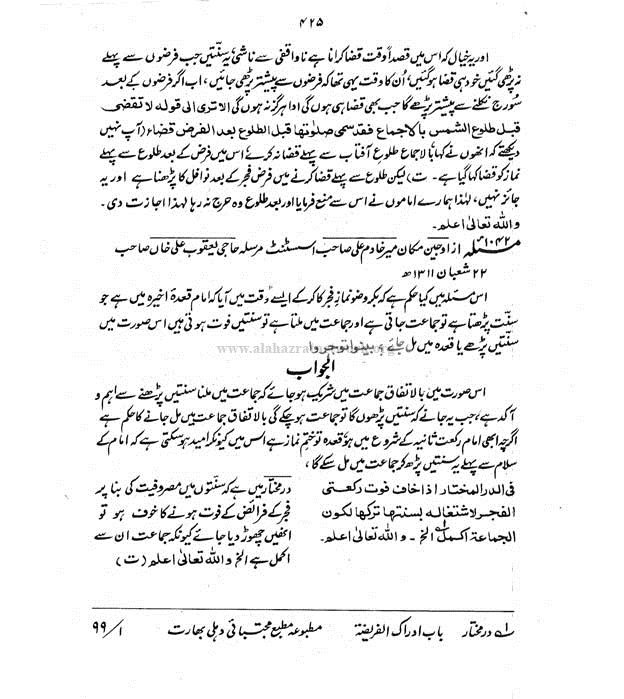 ۴۲۵
اور یہ خیال کہ اس میں قصداً وقت قضا کرانا ہے ناواقفی سے ناشی، یہ سنّتیں جب فرضوں سے پہلے
نہ پڑھی گئیں خود ہی قضا ہوگئیں، اُن کا وقت یہی تھا کہ فرضوں سے پیشتر پڑھی جائیں، اب اگر فرضوں کے بعد
سُورج نکلنے سے پیشتر پڑھے گا جب بھی قضا ہی ہوں گی ادا ہرگز نہ ہوں گی الا تری الی قولہ لا تقضی
قبل طلوع الشمس بالاجماع فقد سمی صلوتھا قبل الطلوع بعد الفرض قضاء (آپ نہیں
دیکھتے کہ انھوں نے کہا بالاجماع طلوع آفتاب سے پہلے قضا نہ کرے، اس میں فرض کے بعد طلوع سے پہلے
نماز کو قضا کہا گیا ہے۔ ت) لیکن طلوع سے پہلے قضا کرنے میں فرض فجر کے بعد نوافل کا پڑھنا ہے اور یہ
جائز نہیں، لہٰذا ہمارے اماموں نے اس سے منع فرمایا اور بعد طلوع وہ حرج نہ رہا لہذا اجازت دی۔
واللہ تعالٰی اعلم۔
مسئلہ ۱۰۴۲ از اوجین مکان میر خادم علی صاحب اسسٹنٹ مرسلہ حاجی یعقوب علی خاں صاحب
۲۲ شعبان ۱۳۱۱ھ
اس مسئلہ میں کیا حکم ہے کہ بکر وضو نمازِ فجر کا کرکے ایسے وقت میں آیا کہ امام قعدۂ اخیرہ میں ہے جو
سنّت پڑھتا ہے تو جماعت جاتی ہے اور جماعت میں ملتا ہے تو سنتیں فوت ہوتی ہیں اس صورت میں
سنتیں پڑھے یا قعدہ میں مل جائے، بینوا توجروا
www.alahazra
الجواب
اس صورت میں بالاتفاق جماعت میں شریک ہوجائے کہ جماعت میں ملنا سنتیں پڑھنے سے اہم و
آکد ہے، جب یہ جانے کہ سنتیں پڑھوں گا تو جماعت ہوچکے گی بالاتفاق جماعت میں مل جانے کا حکم ہے
اگرچہ ابھی امام رکعت ثانیہ کے شروع میں ہو، قعدہ تو ختمِ نماز ہے اس میں کیونکر امید ہوسکتی ہے کہ امام کے
سلام سے پہلے یہ سنتیں پڑھ کر جماعت میں مل سکے گا،
فی الدرالمختار اذا خاف فوت رکعتی
الفجر لاشتغالہ بسنتھا ترکھا لکون
الجماعۃ اکمل الخ۔ واللہ تعالٰی اعلم۔
درمختار میں ہے کہ سنّتوں میں مصروفیت کی بنا پر
فجر کے فرائض کے فوت ہونے کا خوف ہو تو
انھیں چھوڑ دیا جائے کیونکہ جماعت ان سے
اکمل ہے الخ واللہ تعالٰی اعلم (ت)
۱؎ درمختار باب ادراک الفریضۃ مطبوعہ مطبع مجتبائی دہلی بھارت ۱/۹۹